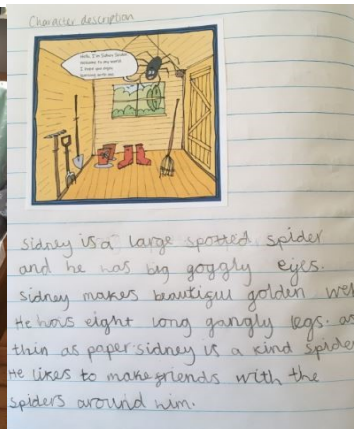 Character description
Hello, I'm Sidney Spider
Welcome to my world
I hope you enjoy
learning with me.
Sidney is a large spotted spider
and he has big goggly eyes.
Sidney makes beautiful golden web
He has eight long gangly legs. as
thin as paper. sidney is a kind spider
He likes to make friends with the
spiders around him.